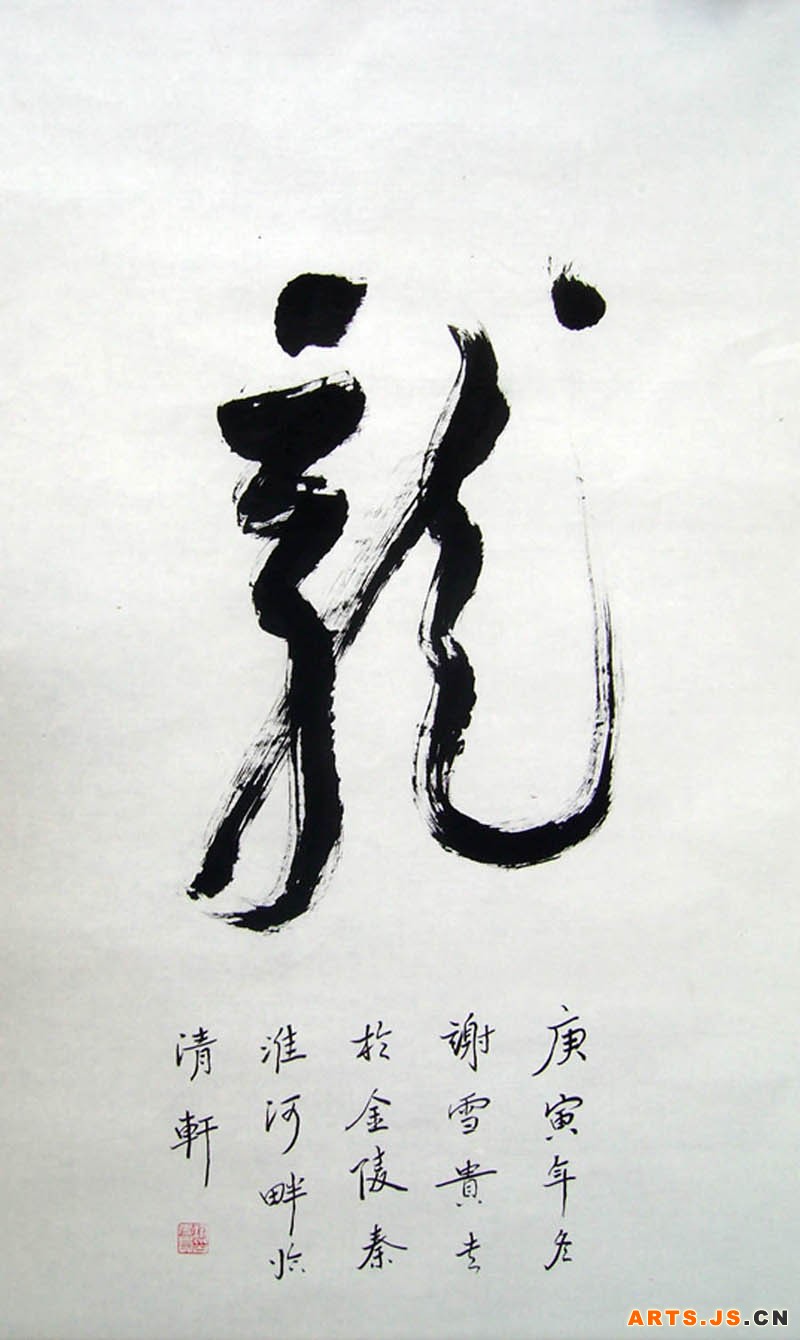 龍
庚寅年冬
謝雪貴書
於金陵秦
淮河畔臨
清軒
ARTS.JS.CN